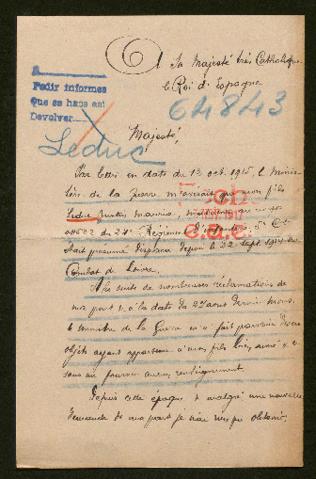 A
Pedir informes
Que se hace est
Devolver
6
Sa Majesté très Catholique
le Roi d'Espagne
64843
Majesté,
Leduc
Par lettre en date du 13 oct. 1915, le Minis-
tère de la Guerre m'avisait que mon fils
Leduc, Maurice,
du 24e Régiment d'
était présumé disparu depuis le 22 sept. 1914 au
Combat de
A la suite de nombreuses réclamations de
ma part, à la date du 27 août dernier, Mons.
le ministre de la Guerre m'a fait parvenir divers
objets ayant appartenu à mon fils
sans me fournir aucun renseignement.
Depuis cette époque & malgré une nouvelle
demande de ma part je n'ai rien pu obtenir.